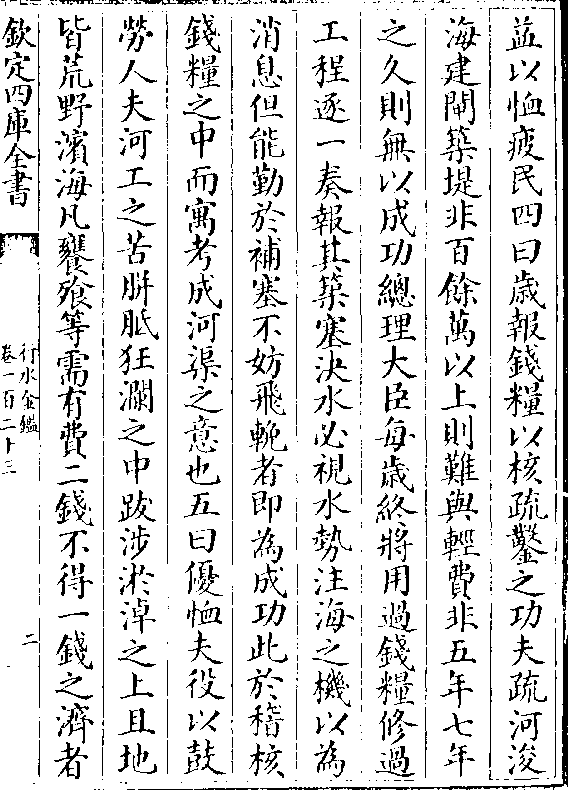 益以恤疲民四曰歳報錢糧以核疏鑿之功夫疏河浚
海建閘築堤非百餘萬以上則難與輕費非五年七年
之久則無以成功總理大臣每歳終將用過錢糧修過
工程逐一奏報其築塞決水必視水勢注海之機以為
消息但能勤於補塞不妨飛輓者即為成功此於稽核
錢糧之中而寓考成河渠之意也五曰優恤夫役以鼓
勞人夫河工之苦胼胝狂瀾之中跋涉淤淖之上且地
皆荒野濱海凡饔飱等需有費二錢不得一錢之濟者
欽定四庫全書
行水金鑑
卷一百二十三
二